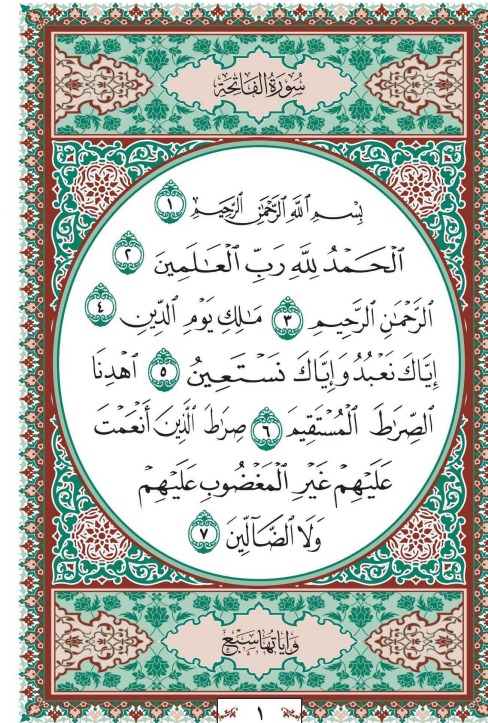 سُورَةُ الْفَاتِحَةِ
بِسْمِ ٱللَّهِ ٱلرَّحْمَٰنِ ٱلرَّحِيمِ ١
ٱلْحَمْدُ لِلَّهِ رَبِّ ٱلْعَٰلَمِينَ ٢
ٱلرَّحْمَٰنِ ٱلرَّحِيمِ ٣ مَٰلِكِ يَوْمِ ٱلدِّينِ ٤
إِيَّاكَ نَعْبُدُ وَإِيَّاكَ نَسْتَعِينُ ٥ ٱهْدِنَا
ٱلصِّرَٰطَ ٱلْمُسْتَقِيمَ ٦ صِرَٰطَ ٱلَّذِينَ أَنْعَمْتَ
عَلَيْهِمْ غَيْرِ ٱلْمَغْضُوبِ عَلَيْهِمْ
وَلَا ٱلضَّآلِّينَ ٧
وَآيَاتُهَا سَبْعٌ
١